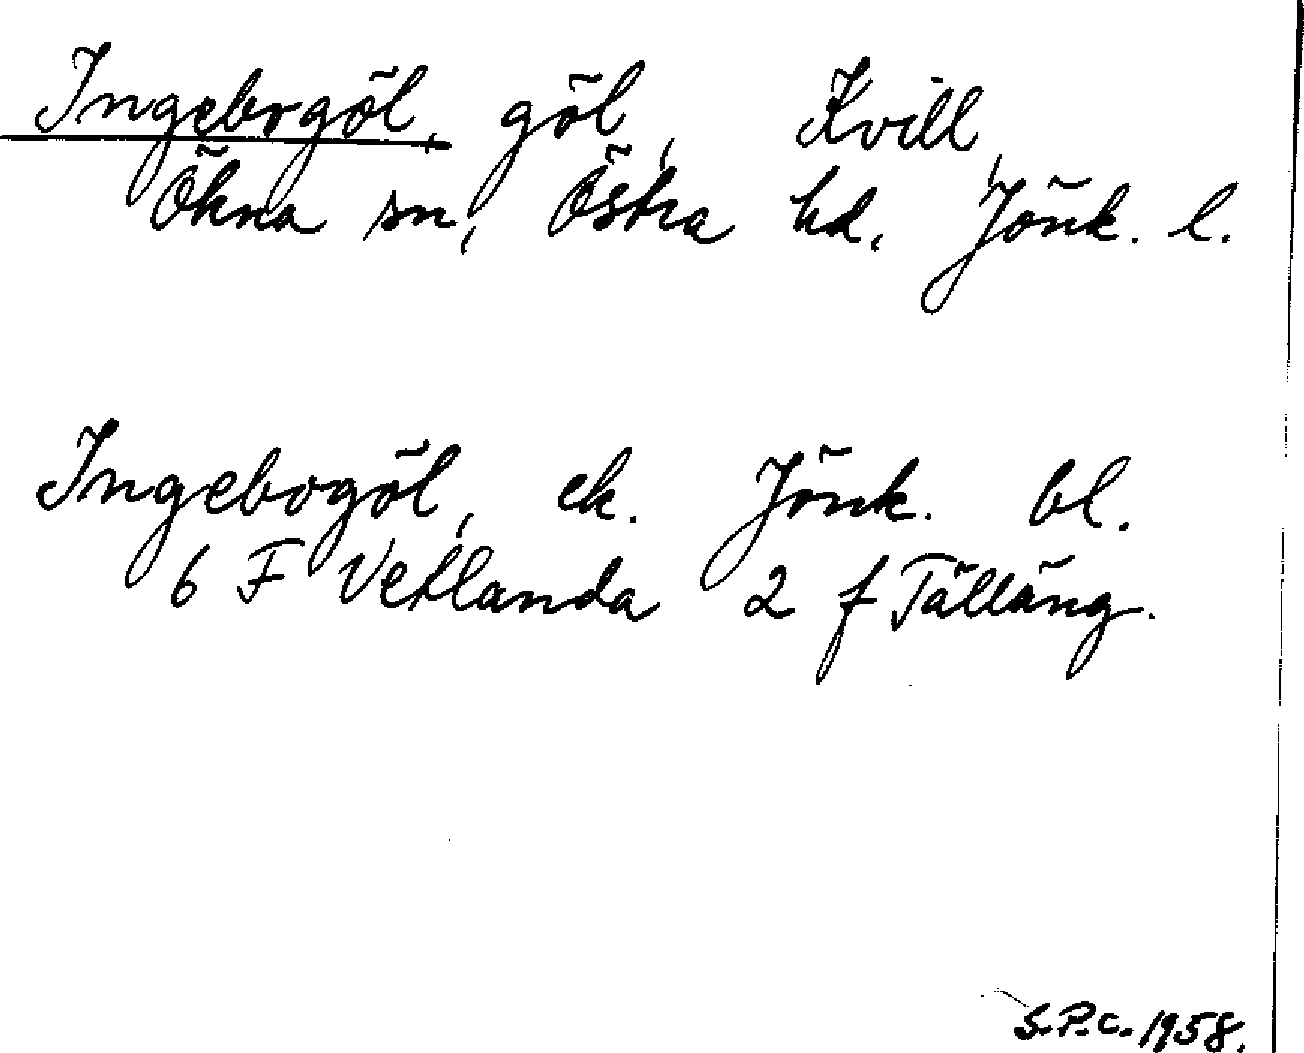 Ingebrgöl, göl, Kvill,
Ökna sn, Östra hd, Jönk. l.
Ingebogöl, ek. Jönk. bl.
6 F Vetlanda 2 f Tälläng.
S.P.C. 1958.